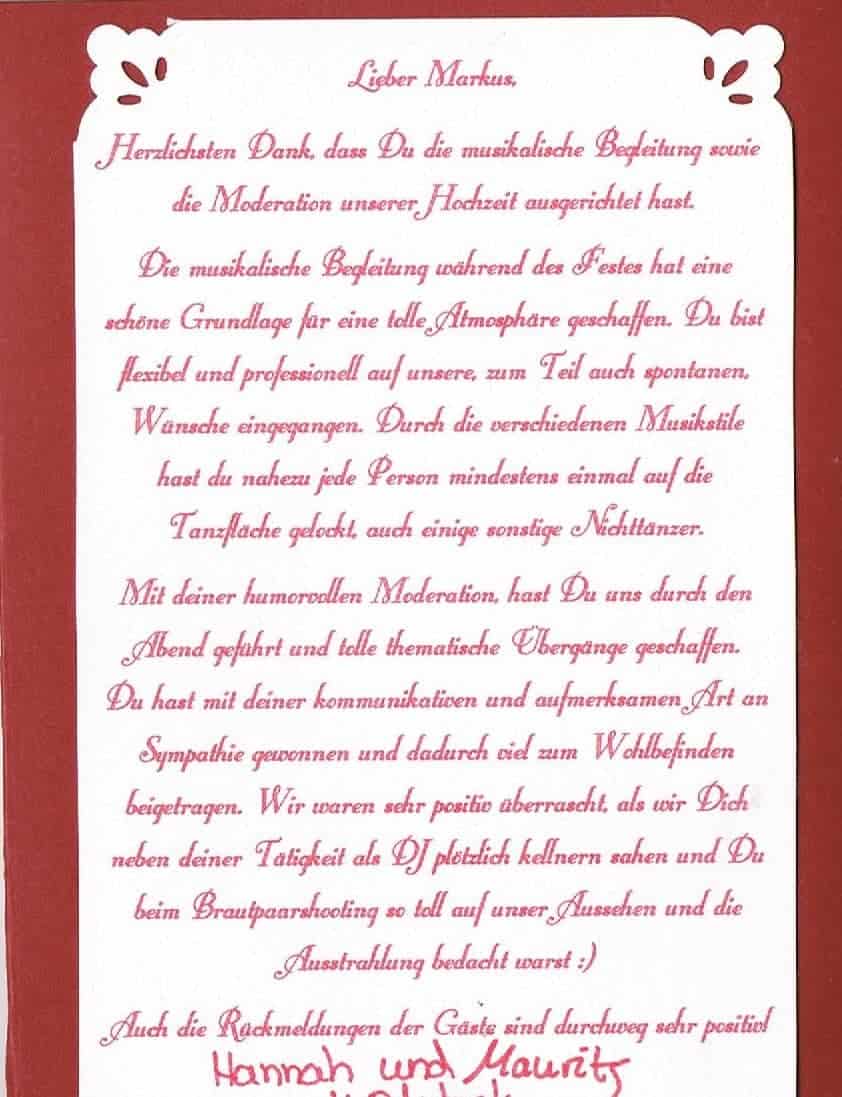 Lieber Markus,
Herzlichsten Dank, dass Du die musikalische Begleitung sowie
die Moderation unserer Hochzeit ausgerichtet hast.
Die musikalische Begleitung während des Festes hat eine
schöne Grundlage für eine tolle Atmosphäre geschaffen. Du bist
flexibel und professionell auf unsere, zum Teil auch spontanen,
Wünsche eingegangen. Durch die verschiedenen Musikstile
hast du nahezu jede Person mindestens einmal auf die
Tanzfläche gelockt, auch einige sonstige Nichttänzer.
Mit deiner humorvollen Moderation, hast Du uns durch den
Abend geführt und tolle thematische Übergänge geschaffen.
Du hast mit deiner kommunikativen und aufmerksamen Art an
Sympathie gewonnen und dadurch viel zum Wohlbefinden
beigetragen. Wir waren sehr positiv überrascht, als wir Dich
neben deiner Tätigkeit als DJ plötzlich kellnern sahen und Du
beim Brautpaarshooting so toll auf unser Aussehen und die
Ausstrahlung bedacht warst :)
Auch die Rückmeldungen der Gäste sind durchweg sehr positiv!
Hannah und Mauritz